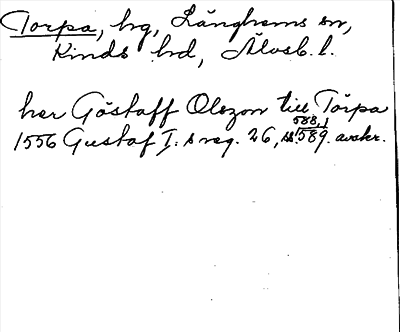 Torpa, hg, Länghems sn,
Kinds hd, Älvsb. l.
her Göstaff Olszon till Torpa
588, 1
1556 Gustaf I. s reg. 26, ss. 589. avskr.